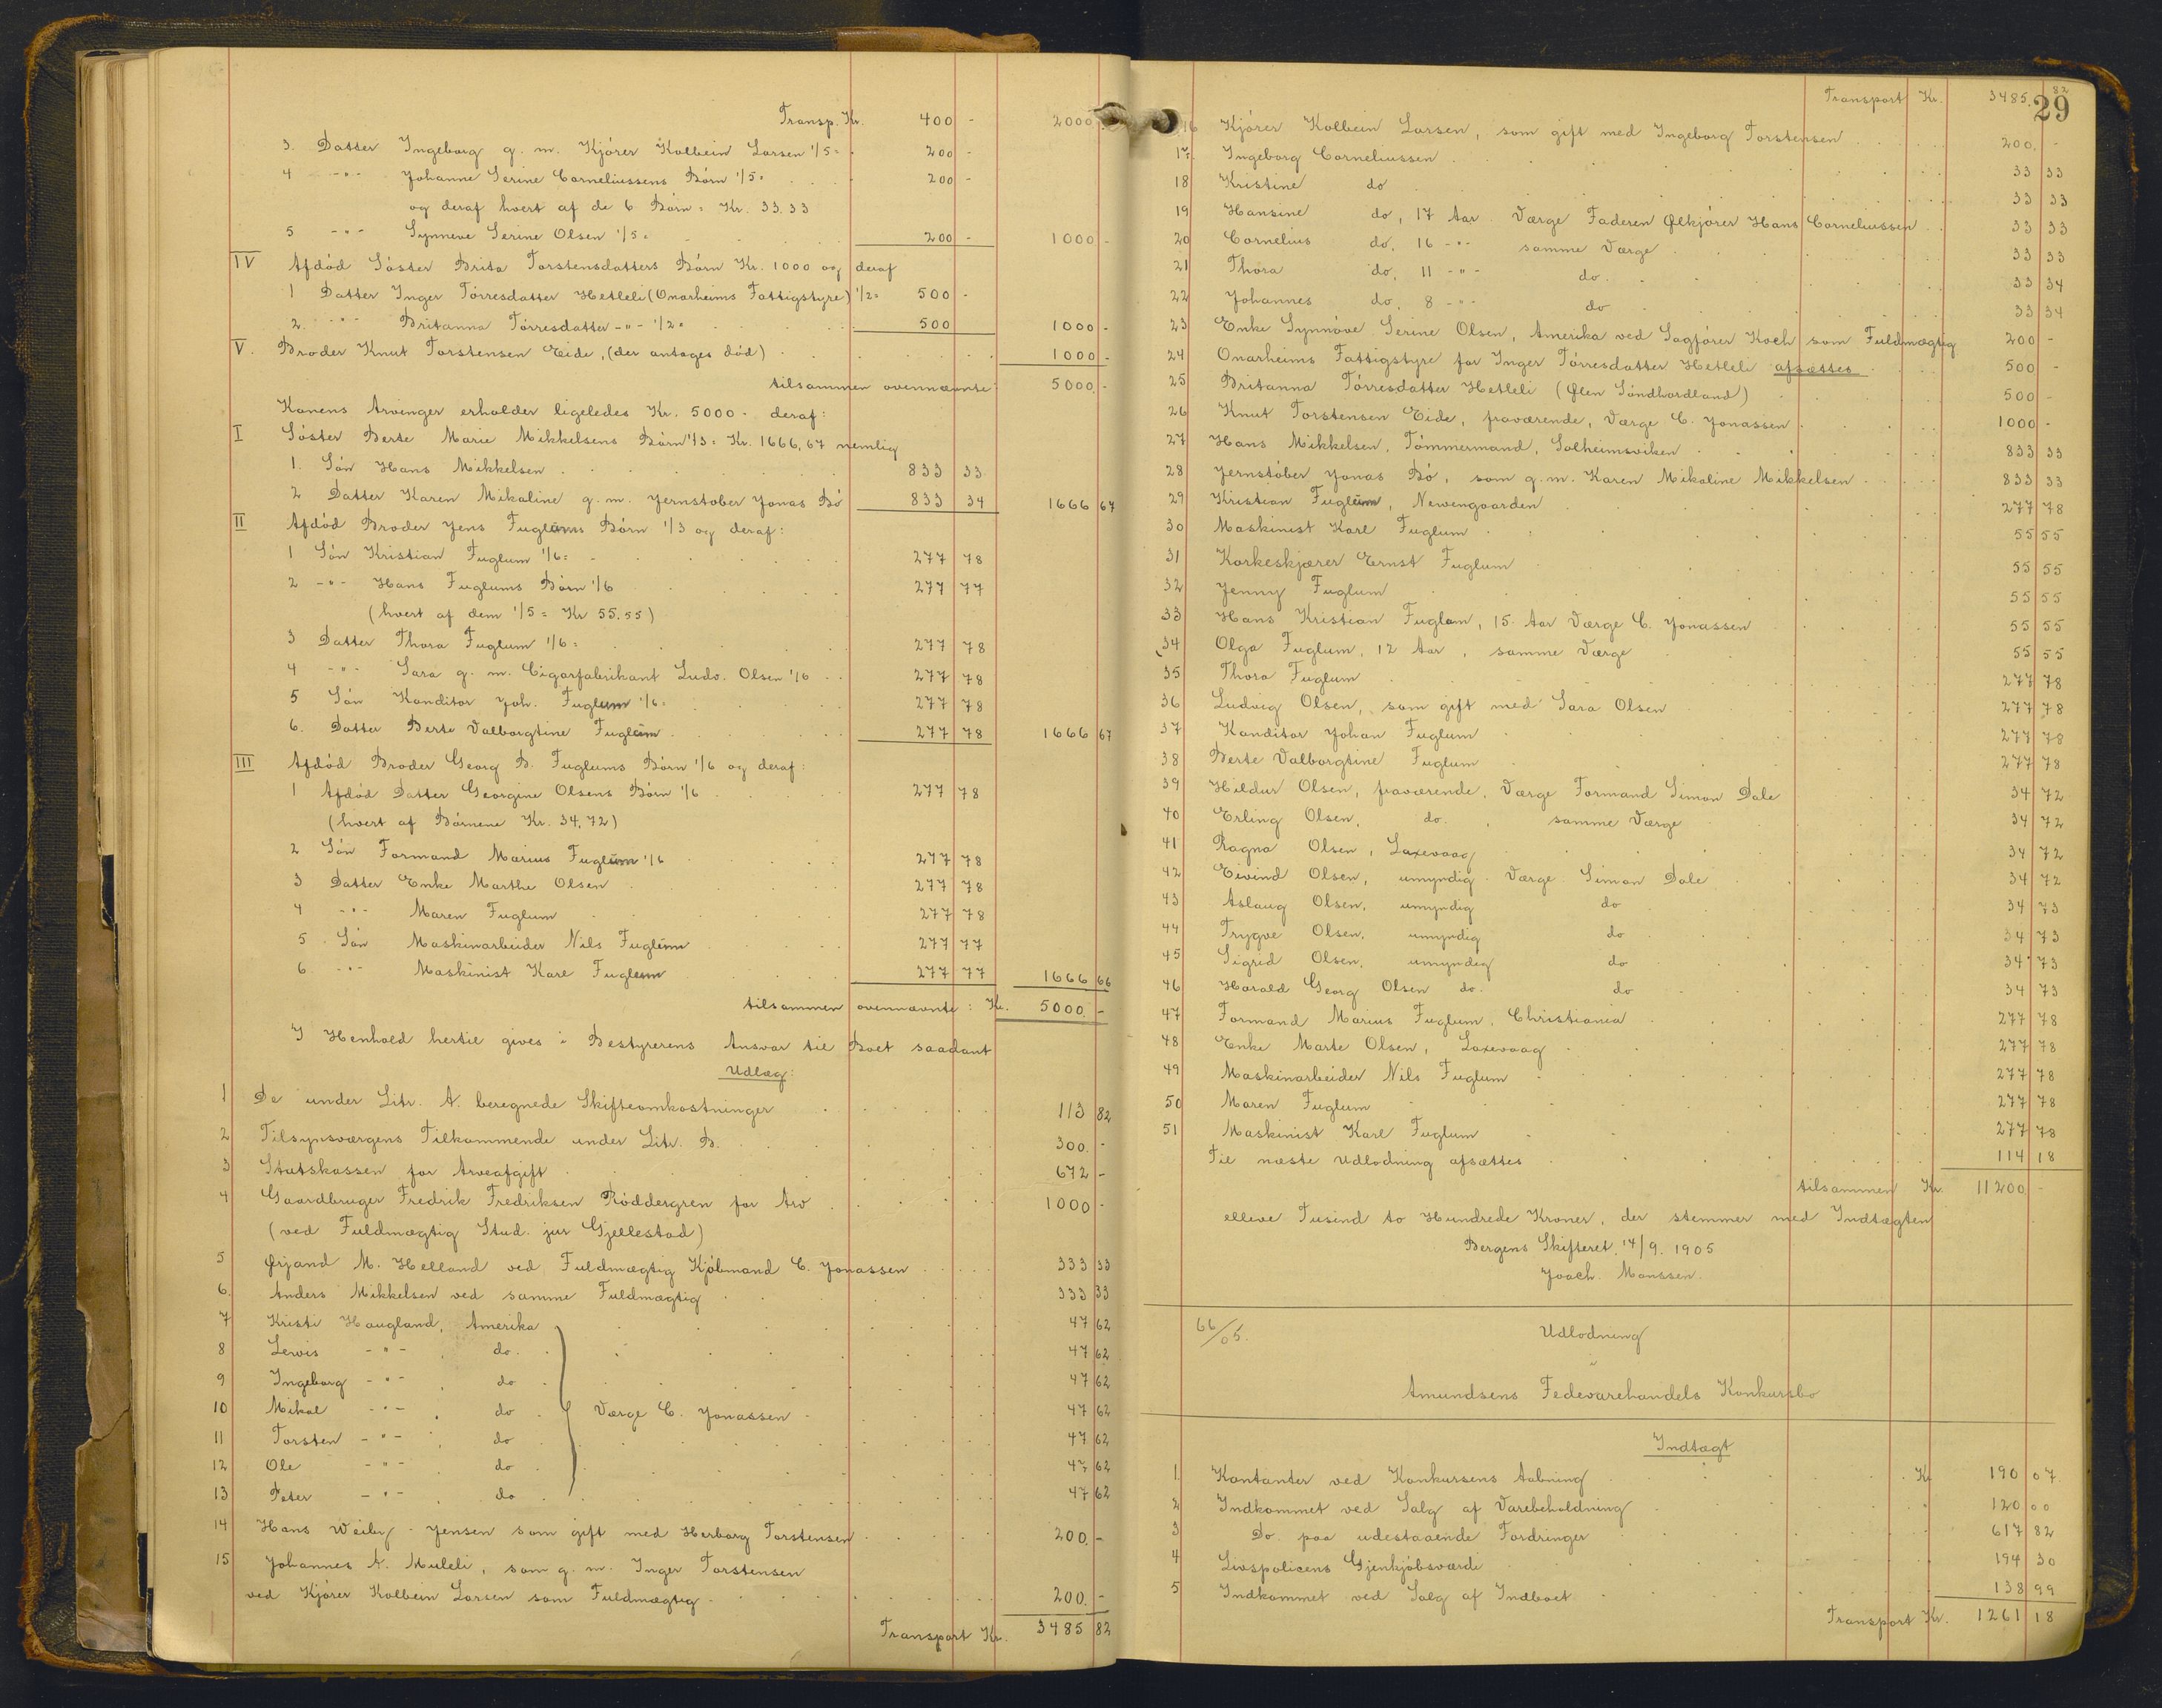 Transp. Kr. 400 - 2000
3. Datter Ingeborg g. m. Kjörer Kolbein Larsen 1/5 = 200 -
4 -"- Johanne Serine Corneliussens Börn 1/5 = 200 -
og deraf hvert af de 6 Börn = Kr. 33.33
5 -"- Synneve Serine Olsen 1/5 = 200 - 1000 -
IV Afdöd Söster Brita Torstensdatters Börn Kr. 1000 og deraf
1 Datter Inger Törresdatter Hetleli (Onarheims Fattigstyre) 1/2 = 500 -
2. -"- Britanna Törresdatter -"- 1/2 = 500 1000 -
V. Broder Knut Torstensen Eide, (der antages död) 1000 -
tilsammen ovennævnte: 5000. -
Konens Arvinger erholder ligeledes Kr. 5000 - deraf:
I Söster Berte Marie Mikkelsens Börn 1/3 = Kr. 1666,67 nemlig
1. Sön Hans Mikkelsen 833 33
2 Datter Karen Mikaline g. m. Jernstöber Jonas Bö 833 34 1666 67
II Afdöd Broder Jens Fuglums Börn 1/3 og deraf:
1 Sön Kristian Fuglum 1/6 = 277 78
2 -"- Hans Fuglums Börn 1/6 277 77
(hvert af dem 1/5 = Kr 55.55)
3 Datter Thora Fuglum 1/6 = 277 78
4 -"- Sara g. m. Cigarfabrikant Ludv. Olsen 1/6 277 78
5 Sön Konditor Joh. Fuglum 1/6 = 277 78
6. Datter Berte Valborgtine Fuglum 277 78 1666 67
III Afdöd Broder Georg B. Fuglums Börn 1/6 og deraf:
1 Afdöd Datter Georgine Olsens Börn 1/6 277 78
(hvert af Börnene Kr. 34,72)
2 Sön Formand Marius Fuglum 1/6 277 78
3 Datter Enke Marthe Olsen 277 78
4 -"- Maren Fuglum 277 78
5 Sön Maskinarbeider Nils Fuglum 277 77
6. -"- Maskinist Karl Fuglum 277 77 1666 66
tilsammen ovennævnte: Kr. 5000. -
I Henhold hertil gives i Bestyrerens Ansvar til Boet saadant
Udlæg:
1 De under Litr. A. beregnede Skifteomkostninger 113 82
2 Tilsynsværgens Tilkommende under Litr. B. 300. -
3 Statskassen for Arveafgift 672 -
4 Gaardbruger Fredrik Fredriksen Röddergren for Arv 1000 -
(ved Fuldmægtig Stud. jur Gjellestad)
5 Ørjand M. Helland ved Fuldmægtig Kjöbmand C. Jonassen 333 33
6. Anders Mikkelsen ved samme Fuldmægtig 333 33
7 Kristi Haugland, Amerika 47 62
8 Lewis -"- , do. 47 62
9 Ingeborg -"- , do 47 62
10 Mikal -"- , do Værge C. Jonassen 47 62
11 Torsten -"- , do 47 62
12 Ole -"- , do 47 62
13 Peter -"- , do 47 62
14 Hans Weiby-Jensen som gift med Herborg Torstensen 200. -
15 Johannes A. Muleli, som g. m. Inger Torstensen
ved Kjörer Kolbein Larsen som Fuldmægtig 200. -
Transport Kr. 3485 82
29
Transport Kr. 3485. 82
16 Kjörer Kolbein Larsen, som gift med Ingeborg Torstensen 200. -
17. Ingeborg Corneliussen 33 33
18 Kristine do 33 33
19 Hansine do, 17 Aar. Værge Faderen Ølkjörer Hans Corneliussen 33 33
20 Cornelius do, 16 -"- samme Værge 33 33
21 Thora do, 11 -"- do. 33 34
22 Johannes do, 8 -"- do 33 34
23 Enke Synnöve Serine Olsen, Amerika ved Sagförer Koch som Fuldmægtig 200 -
24 Onarheims Fattigstyre for Inger Törresdatter Hetleli afsættes 500 -
25 Britanna Törresdatter Hetleli (Ølen Söndhordland) 500 -
26 Knut Torstensen Eide, fraværende, Værge C. Jonassen 1000 -
27 Hans Mikkelsen, Tömmermand, Solheimsviken 833 33
28 Jernstöber Jonas Bö, som g. m. Karen Mikaline Mikkelsen 833 33
29 Kristian Fuglum, Newengaarden 277 78
30 Maskinist Karl Fuglum 55 55
31 Korkeskjærer Ernst Fuglum 55 55
32 Jenny Fuglum 55 55
33 Hans Kristian Fuglum, 15 Aar Værge C. Jonassen 55 55
34 Olga Fuglum, 12 Aar, samme Værge 55 55
35 Thora Fuglum 277 78
36 Ludvig Olsen, som gift med Sara Olsen 277 78
37 Konditor Johan Fuglum 277 78
38 Berte Valborgtine Fuglum 277 78
39 Hildur Olsen, fraværende, Værge Formand Simon Dale 34 72
40 Erling Olsen, do. , samme Værge 34 72
41 Ragna Olsen, Laxevaag 34 72
42 Eivind Olsen, umyndig. Værge Simon Dale 34 72
43 Aslaug Olsen, umyndig do 34 73
44 Trygve Olsen, umyndig do 34 73
45 Sigrid Olsen, umyndig do 34 73
46 Harald Georg Olsen do. do 34 73
47 Formand Marius Fuglum, Christiania 277 78
48 Enke Marte Olsen, Laxevaag 277 78
49 Maskinarbeider Nils Fuglum 277 78
50 Maren Fuglum 277 78
51 Maskinist Karl Fuglum 277 78
Til næste Udlodning afsættes 114 18
tilsammen Kr. 11200 -
elleve Tusind to Hundrede Kroner, der stemmer med Indtægten
Bergens Skifteret, 14/9. 1905
Joach. Monssen.
66/05. Udlodning
i
Amundsens Fedevarehandels Konkursbo
Indtægt
1. Kontanter ved Konkursens Aabning Kr 190 07
2 Indkommet ved Salg af Varebeholdning 120 00
3 Do. paa udestaaende Fordringer 617 82
4 Livspolicens Gjenkjöbsværdi 194 30
5 Indkommet ved Salg af Indboet 138 99
Transport Kr. 1261 18